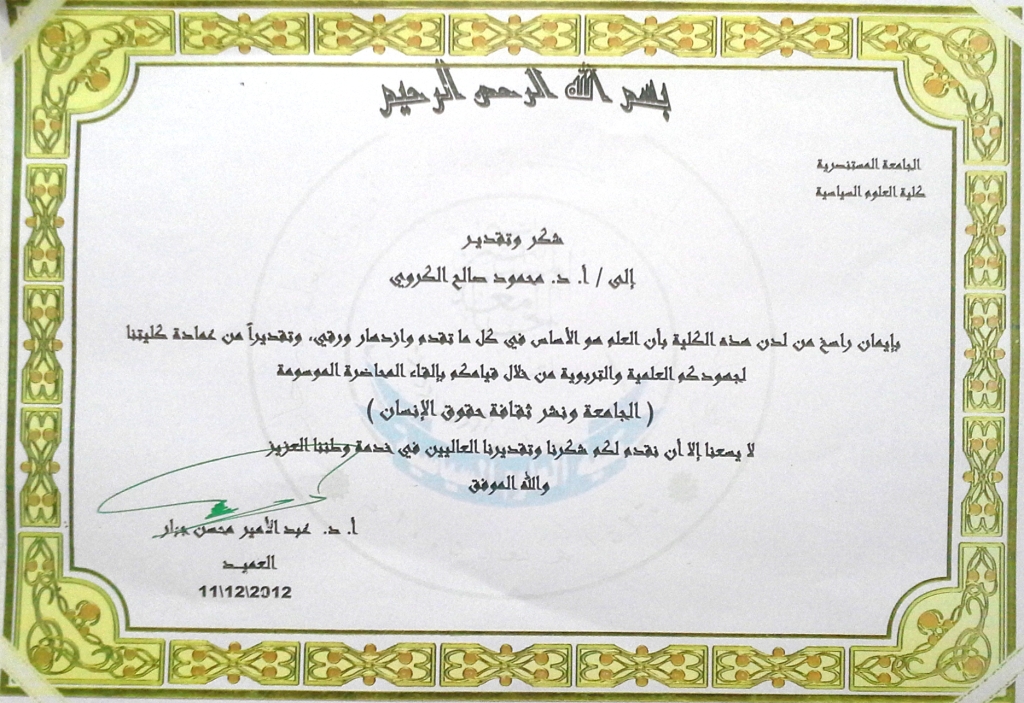 بسم الله الرحمن الرحيم
الجامعة المستنصرية
كلية العلوم السياسية
شكر وتقدير
إلى / أ. د. محمود صالح الكروي
بإيمان راسخ من لدن هذه الكلية بأن العلم هو الأساس في كل ما تقدم وازدهار ورقي، وتقديراً من عمادة كليتنا
لجهودكم العلمية والتربوية من خلال قيامكم بإلقاء المحاضرة الموسومة
( الجامعة ونشر ثقافة حقوق الإنسان )
لا يسعنا إلا أن نقدم لكم شكرنا وتقديرنا العاليين في خدمة وطننا العزيز
والله الموفق
أ. د. عبد الأمير محسن جبار
العميد
11\12\2012